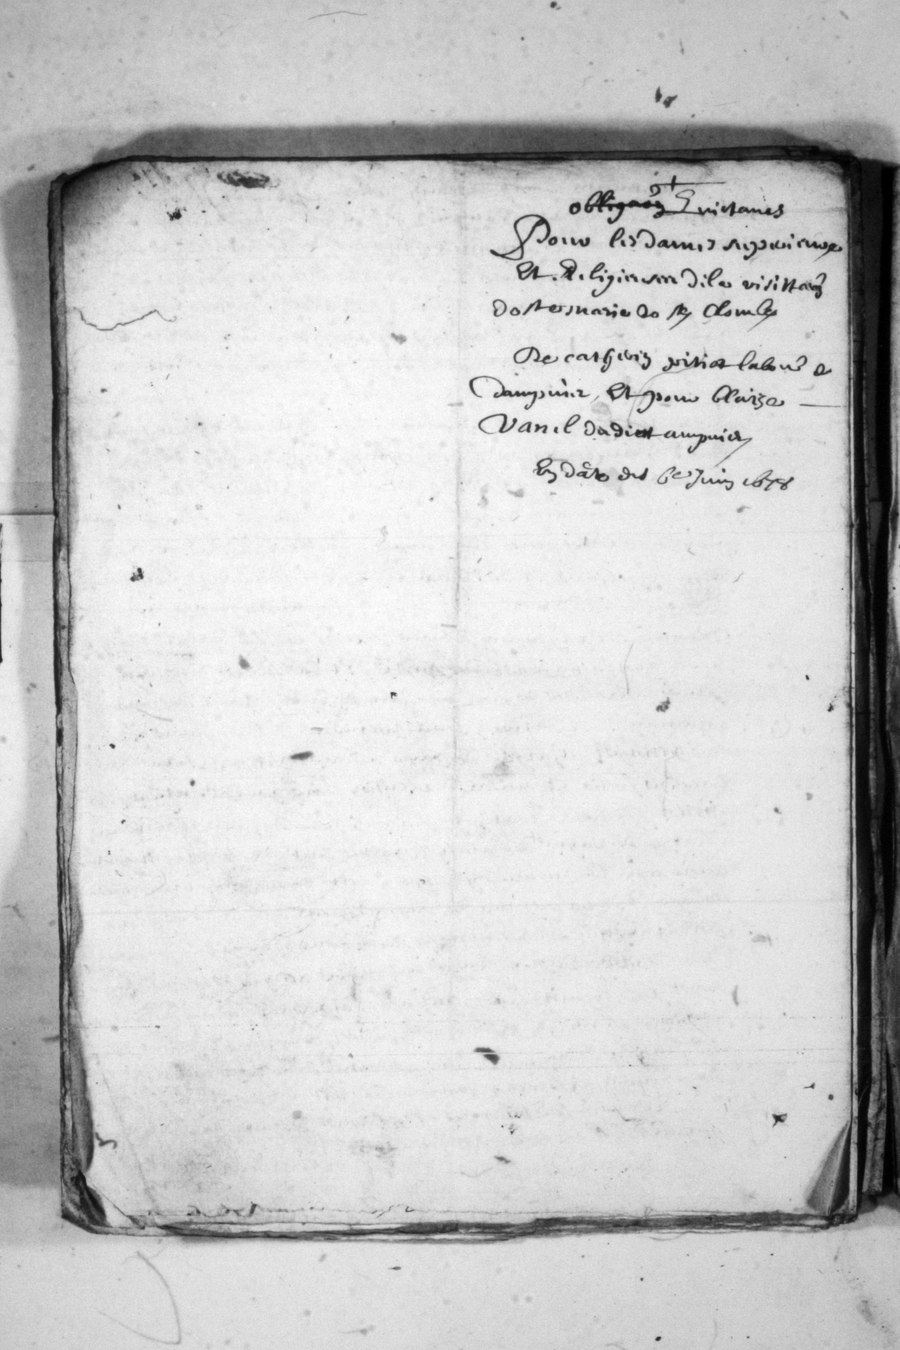 obligaõn Quictance
Pour les dames superieure
Et Religieuses de la visittaõn
de ste marie de ste Colombe
De catherin petiot labour a
Dampierre, Et pour blaize
Vanel dudict ampuier
En date du 6e Juin 1678